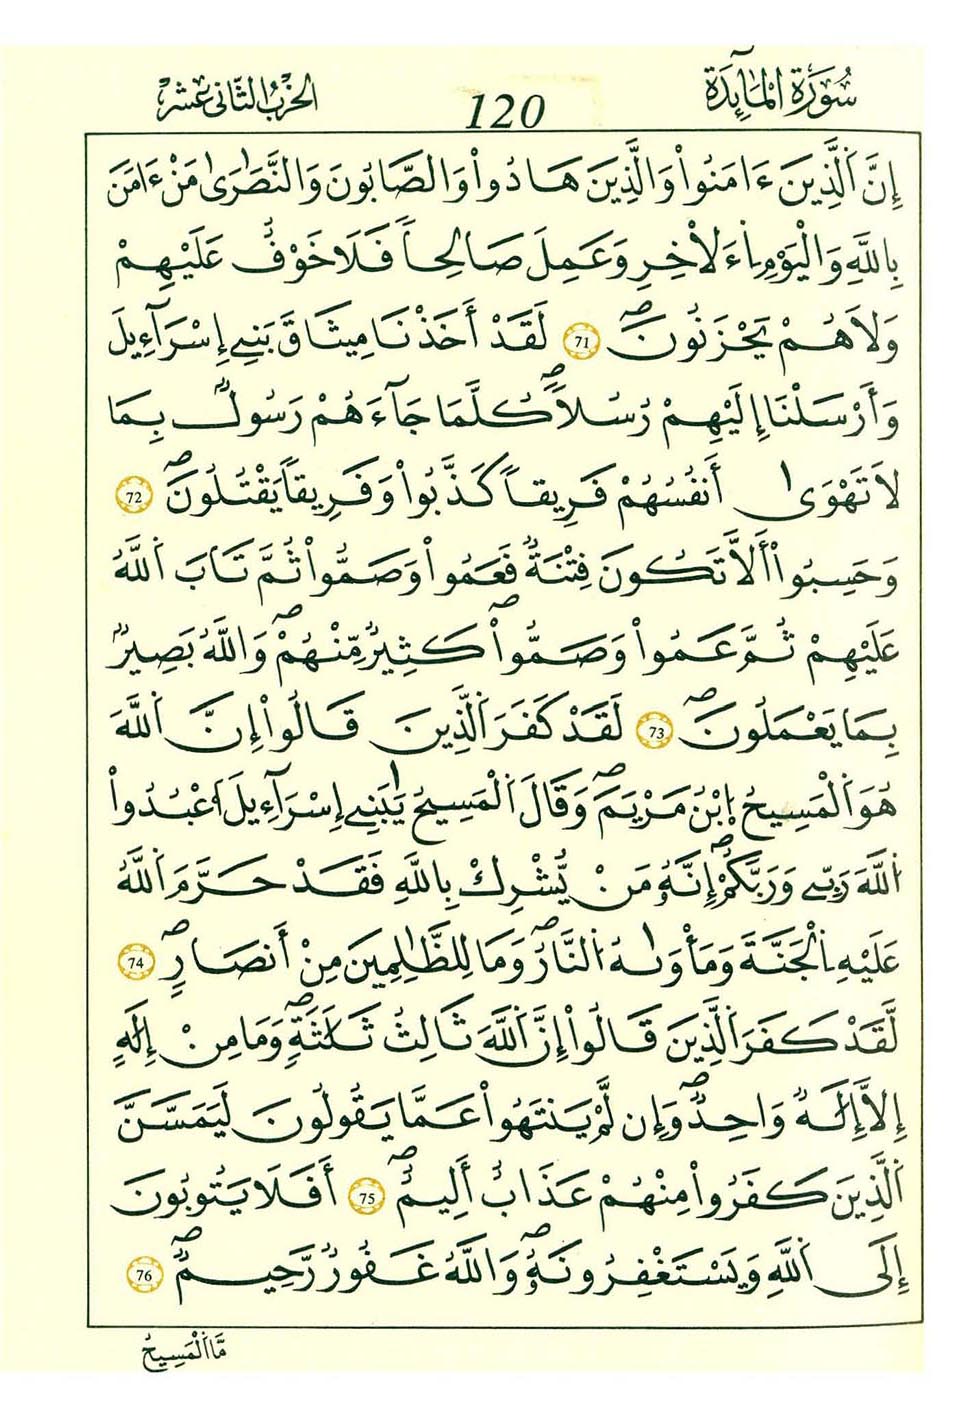 سُورَةُ الْمَآئِدَةِ
120
الحزب الثاني عشر
إِنَّ اَ۬لذِينَ ءَامَنُواْ وَالذِينَ هَادُواْ وَالصَّابُونَ وَالنَّصَٰرَىٰ مَنْ ءَامَنَ
بِاللَّهِ وَالْيَوْمِ اِ۬ءَلَاخِرِ وَعَمِلَ صَالِحاٗ فَلَا خَوْفٌ عَلَيْهِمْ
وَلَا هُمْ يَحْزَنُونَۖ 71 لَقَدْ أَخَذْنَا مِيثَاقَ بَنِے إِسْرَآءِيلَ
وَأَرْسَلْنَا إِلَيْهِمْ رُسُلاٗۖ كُلَّمَا جَآءَهُمْ رَسُولُۢ بِمَا
لَا تَهْوَىٰ أَنفُسُهُمْ فَرِيقاٗ كَذَّبُواْ وَفَرِيقاٗ يَقْتُلُونَۖ 72
وَحَسِبُواْ أَلَّا تَكُونَ فِتْنَةٌ فَعَمُواْ وَصَمُّواْ ثُمَّ تَابَ اَ۬للَّهُ
عَلَيْهِمْ ثُمَّ عَمُواْ وَصَمُّواْۖ كَثِيرٌ مِّنْهُمْۖ وَاللَّهُ بَصِيرُۢ
بِمَا يَعْمَلُونَۖ 73 لَقَدْ كَفَرَ اَ۬لذِينَ قَالُواْ إِنَّ اَ۬للَّهَ
هُوَ اَ۬لْمَسِيحُ اُ۪بْنُ مَرْيَمَۖ وَقَالَ اَ۬لْمَسِيحُ يَٰبَنِے إِسْرَآءِيلَ اَ۟عْبُدُواْ
اُ۬للَّهَ رَبِّے وَرَبَّكُمْۖ إِنَّهُۥ مَنْ يُّشْرِكْ بِاللَّهِ فَقَدْ حَرَّمَ اَ۬للَّهُ
عَلَيْهِ اِ۬لْجَنَّةَ وَمَأْوَىٰهُ اُ۬لنَّارُۖ وَمَا لِلظَّٰلِمِينَ مِنْ أَنصَارٖۖ 74
لَّقَدْ كَفَرَ اَ۬لذِينَ قَالُواْ إِنَّ اَ۬للَّهَ ثَالِثُ ثَلَٰثَةٖۖ وَمَا مِنْ إِلَٰهٍ
إِلَّا إِلَٰهٌ وَاحِدٌۖ وَإِن لَّمْ يَنتَهُواْ عَمَّا يَقُولُونَ لَيَمَسَّنَّ
اَ۬لذِينَ كَفَرُواْ مِنْهُمْ عَذَابٌ أَلِيمٌۖ 75 أَفَلَا يَتُوبُونَ
إِلَى اَ۬للَّهِ وَيَسْتَغْفِرُونَهُۥۖ وَاللَّهُ غَفُورٌ رَّحِيمٌۖ 76
مَّا اَ۬لْمَسِيحُ